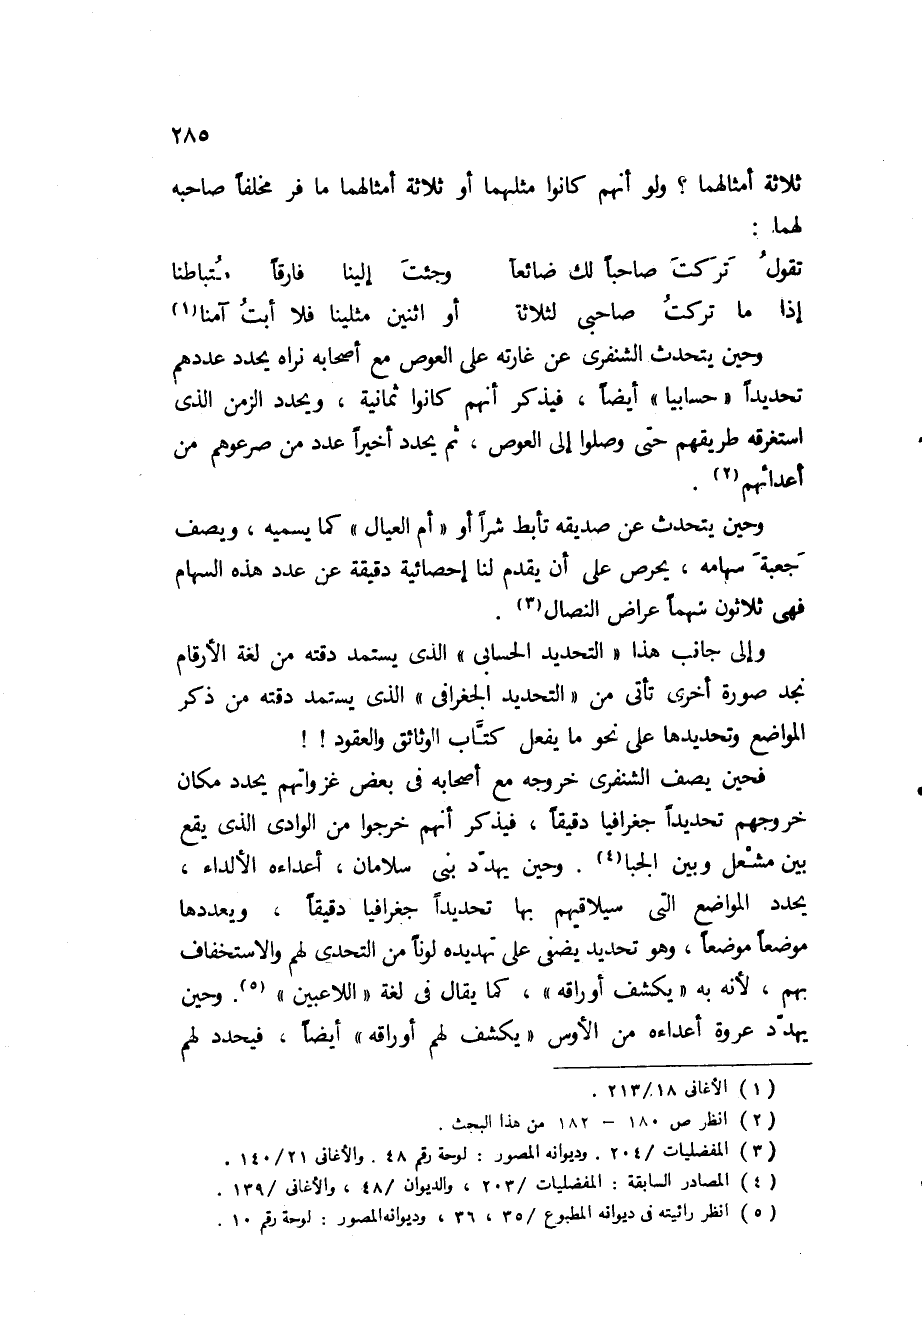 ٢٨٥
ثلاثة أمثالهما ؟ ولو أنهم كانوا مثليهما أو ثلاثة أمثالهما ما فر مخلفاً صاحبه
لهما :
تقولُ تَركتَ صاحباً لك ضائعاً وجئتَ إلينا فارقاً مُتباطنا
إذا ما تركتُ صاحبى لثلاثة أو اثنين مثلينا فلا أبتُ آمنا(١)
وحين يتحدث الشنفرى عن غارته على العوص مع أصحابه نراه يحدد عددهم
تحديداً « حسابيا » أيضاً ، فيذكر أنهم كانوا ثمانية ، ويحدد الزمن الذى
استغرقه طريقهم حتّى وصلوا إلى العوص ، ثم يحدد أخيراً عدد من صرعوهم من
أعدائهم(٢) .
وحين يتحدث عن صديقه تأبط شراً أو « أم العيال » كما يسميه ، ويصف
جَعبةَ سهامه ، يحرص على أن يقدم لنا إحصائية دقيقة عن عدد هذه السهام
فهى ثلاثون سهماً عراض النصال(٣) .
وإلى جانب هذا « التحديد الحسابى » الذى يستمد دقته من لغة الأرقام
نجد صورة أخرى تأتى من « التحديد الجغرافى » الذى يستمد دقته من ذكر
المواضع وتحديدها على نحو ما يفعل كتَّاب الوثائق والعقود ! !
فحين يصف الشنفرى خروجه مع أصحابه فى بعض غزواتهم يحدد مكان
خروجهم تحديداً جغرافيا دقيقاً ، فيذكر أنهم خرجوا من الوادى الذى يقع
بين مشْعل وبين الجبا(٤) . وحين يهدّد بنى سلامان ، أعداءه الألداء ،
يحدد المواضع التى سيلاقيهم بها تحديداً جغرافيا دقيقاً ، ويعددها
موضعاً موضعاً ، وهو تحديد يضفى على تهديده لوناً من التحدى لهم والاستخفاف
بهم ، لأنه به « يكشف أوراقه » ، كما يقال فى لغة « اللاعبين » (٥). وحين
يهدّد عروة أعداءه من الأوس « يكشف لهم أوراقه » أيضاً ، فيحدد لهم
( ١ ) الأغانى ٢١٣/١٨ .
( ٢ ) انظر ص ١٨٠ – ١٨٢ من هذا البحث .
( ٣ ) المفضليات /٢٠٤ . وديوانه المصور : لوحة رقم ٤٨ . والأغانى ١٤٠/٢١ .
( ٤ ) المصادر السابقة : المفضليات /٢٠٣ ، والديوان /٤٨ ، والأغانى /١٣٩ .
( ٥ ) انظر رائيته فى ديوانه المطبوع /٣٥ ، ٣٦ ، وديوانه المصور : لوحة رقم ١٠ .